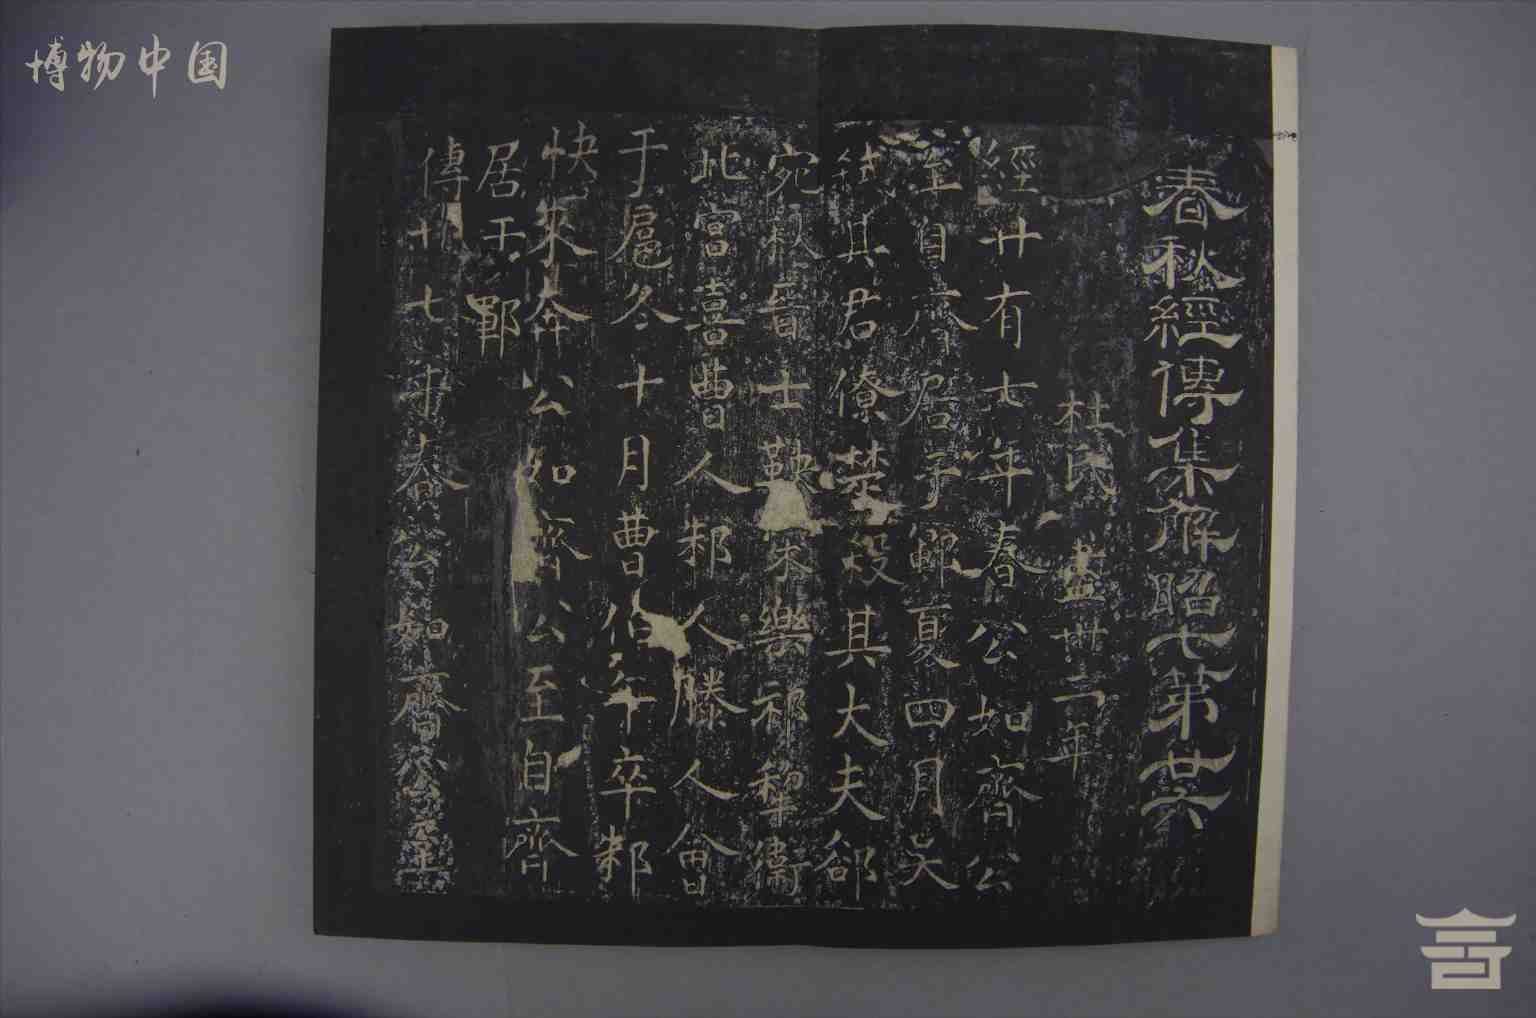 博物中国
春秋經傳集解昭七第廿六
杜氏 盡卅二年
經廿有七年春公如齊公
至自齊居于鄆夏四月吳
弑其君僚楚殺其大夫郤
宛秋晉士鞅宋樂祁犂衛
北宮喜曹人邾人滕人會
于扈冬十月曹伯午卒邾
快來奔公如齊公至自齊
居于鄆
傳廿七年春公如齊公至